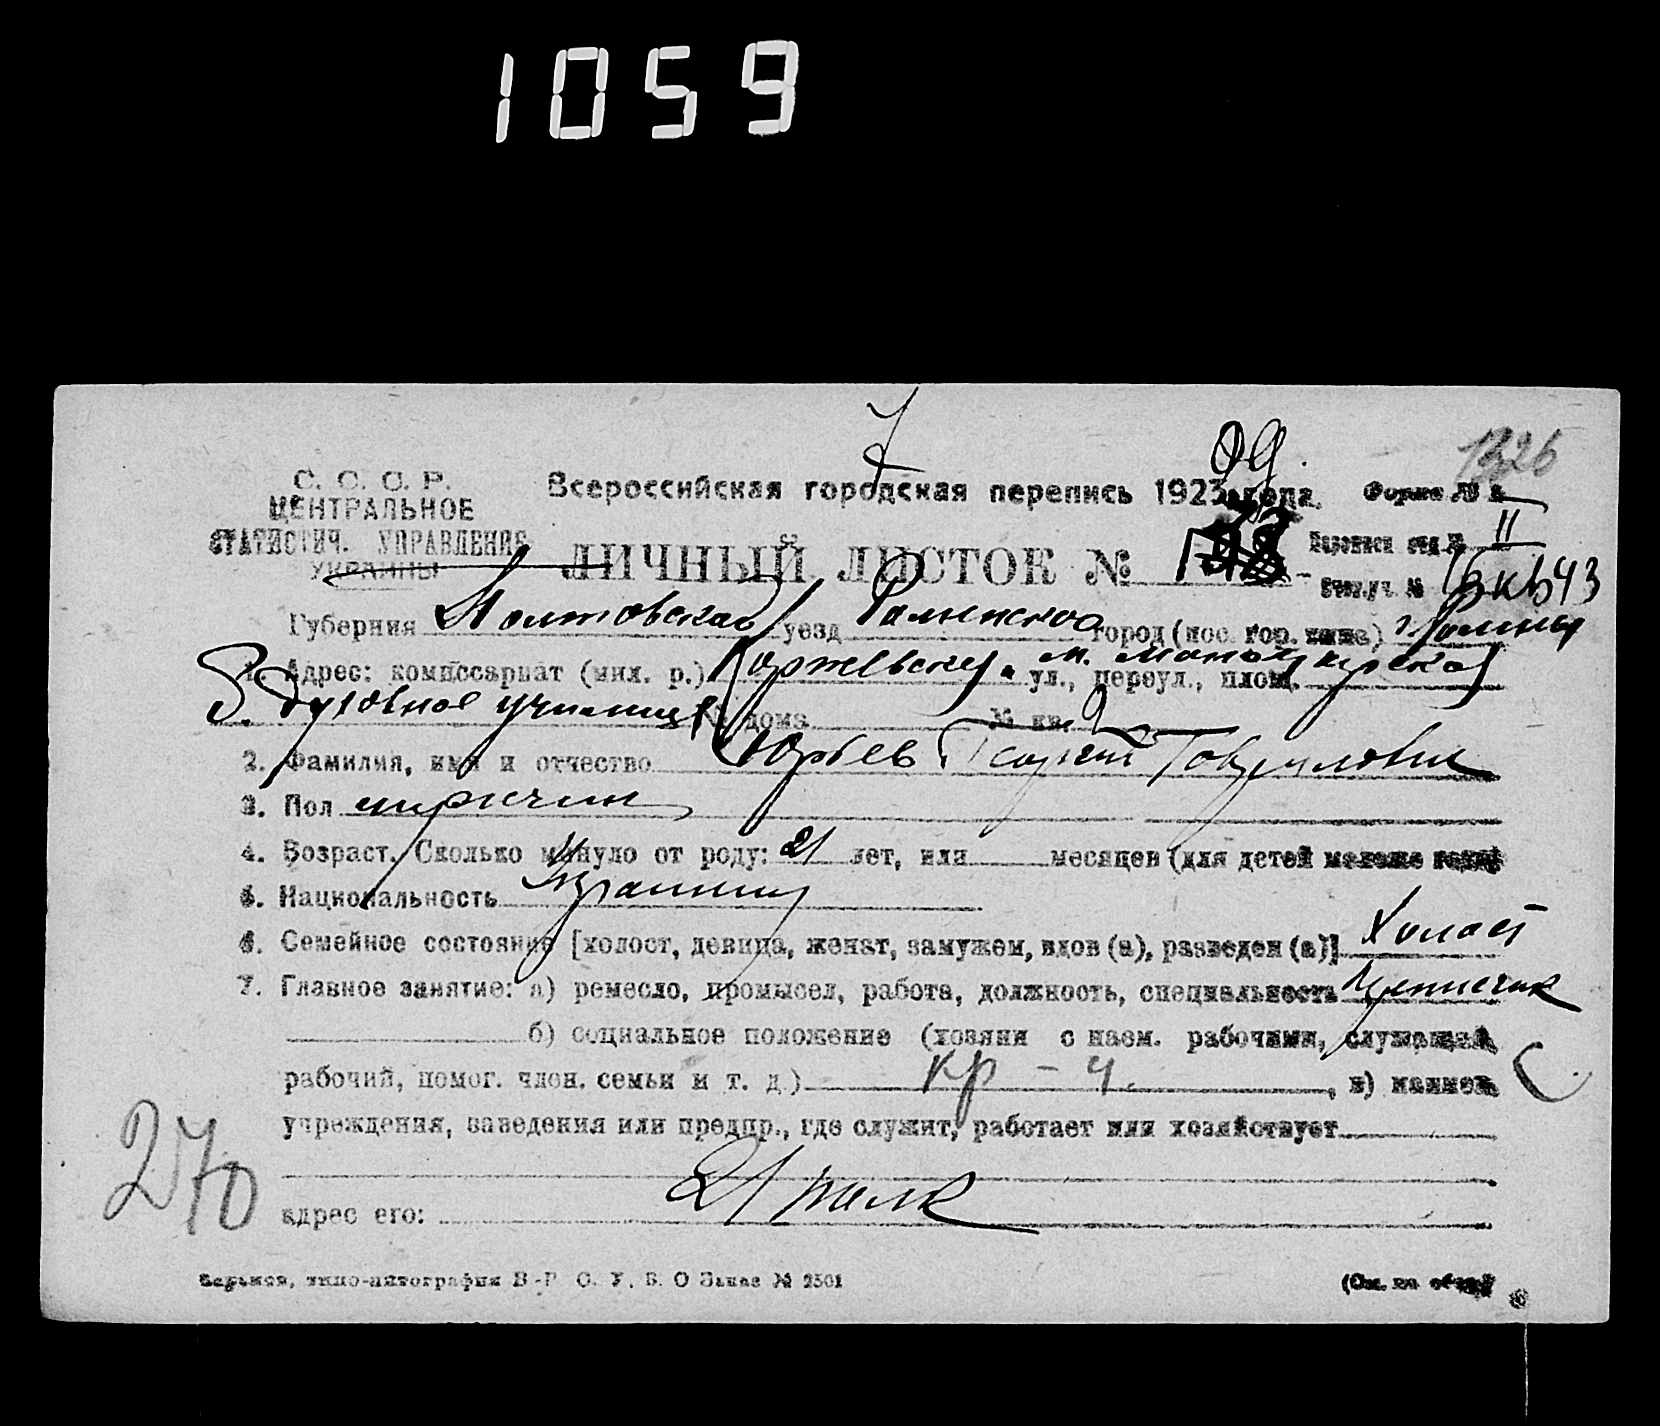 1059
7
99.
1326
С. С. С. Р.
ЦЕНТРАЛЬНОЕ
СТАТИСТИЧ. УПРАВЛЕНИЕ
УКРАИНЫ
Всероссийская городская перепись 1923 года.
Форма № 2
ЛИЧНЫЙ ЛИСТОК №
II
43
Губерния Полтавская уезд Роменского город (пос. гор. типа) г. Ромны
1. Адрес: комиссариат (мил. р.) ул., переул., площ.
Духовное училище № дома № кв.
2. Фамилия, имя и отчество Юрьев Георгий Гаврилович
3. Пол мужчин
4. Возраст. Сколько минуло от роду: 21 лет, или месяцев (для детей моложе года)
5. Национальность Украинец
6. Семейное состояние [холост, девица, женат, замужем, вдов (а), разведен (а)] Холост
7. Главное занятие: а) ремесло, промысел, работа, должность, специальность
б) социальное положение (хозяин с наем. рабочими, служащий,
рабочий, помог. член. семьи и т. д.) кр - ч. , в) наимен.
учреждения, заведения или предпр., где служит, работает или хозяйствует
21 полк
адрес его:
270
Харьков, типо-литография В.-Р. С. У. В. О Заказ № 2501
(См. на обор.)